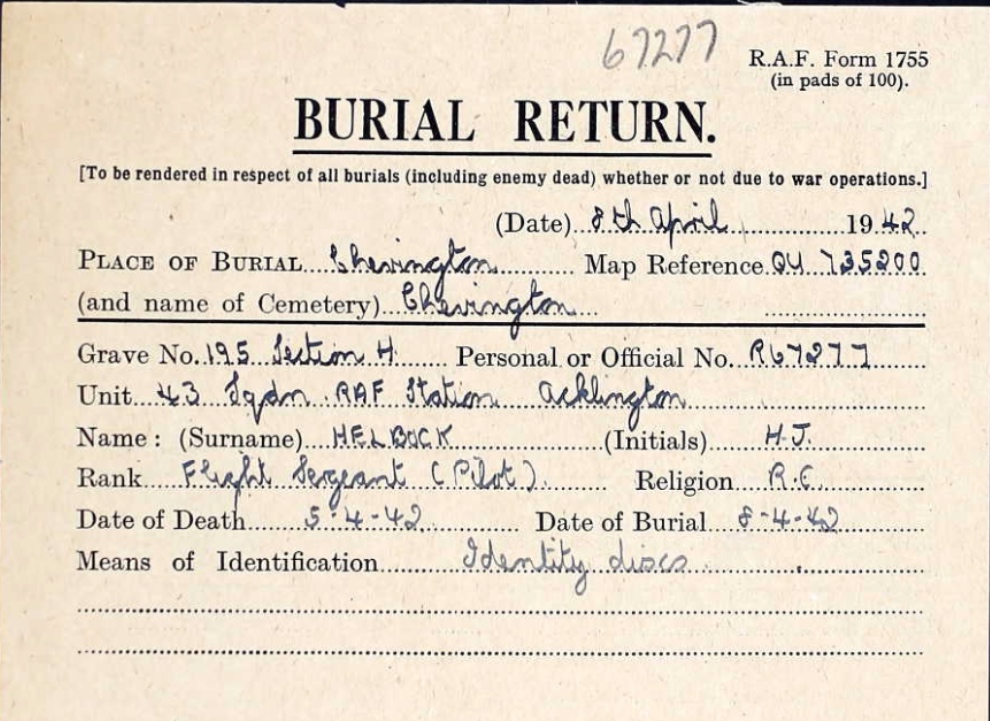 67277
R.A.F. Form 1755
(in pads of 100).
BURIAL RETURN.
[To be rendered in respect of all burials (including enemy dead) whether or not due to war operations.]
(Date) 8th April 1942
PLACE OF BURIAL Chevington Map Reference QU 735200
(and name of Cemetery) Chevington
Grave No. 195 Section H. Personal or Official No. R67277
Unit 43 Sqdn. RAF Station Acklington
Name: (Surname) HELBOCK (Initials) H.J.
Rank Flight Sergeant (Pilot) Religion R.C.
Date of Death 5-4-42 Date of Burial 8-4-42
Means of Identification Identity discs